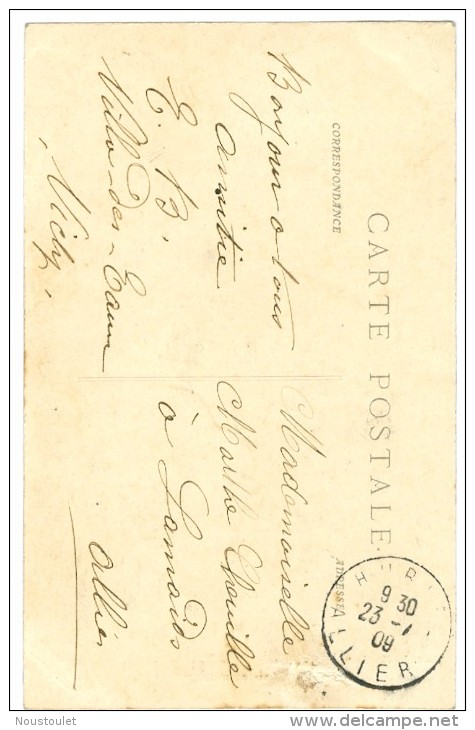 CARTE POSTALE
CORRESPONDANCE
ADRESSE
Bonjour a tous
amitié
E. B.
Villa des Eaux
Vichy
Mademoiselle
Marthe
à Lamaids
Allier
9 30
23 - 1
09
ALLIER
Noustoulet
www.delcampe.net